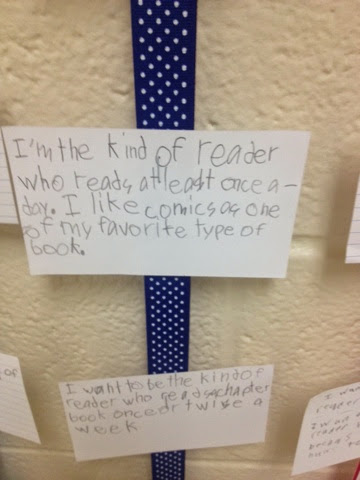 I'm the kind of reader
who reads at least once a-
day. I like comics as one
of my favorite type of
book.
I want to be the kind of
reader who reads a chapter
book once or twise a
week
of
I wa
reader
I wan